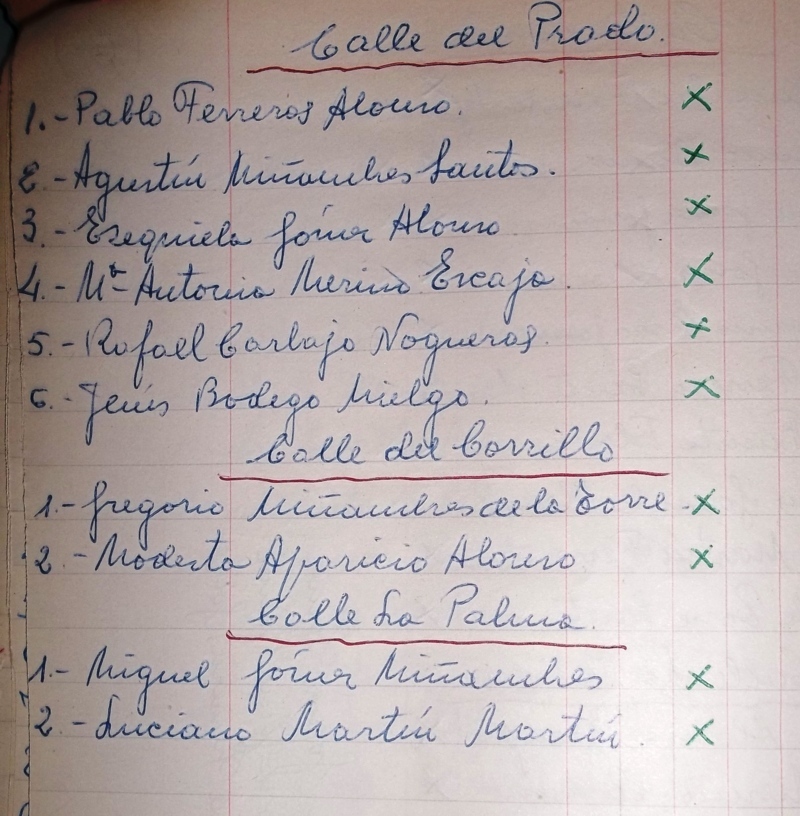 Calle del Prado.
1.- Pablo Ferreros Alonso. X
2.- Agustín Miñambres Santos. X
3.- Ezequiela Gómez Alonso X
4.- Mª Antonia Merino Escaja. X
5.- Rafael Carbajo Nogueras. X
6.- Jesús Bodego Mielgo. X
Calle del Corrillo
1.- Gregorio Miñambres de la Torre X
2.- Modesta Aparicio Alonso X
Calle La Palma.
1.- Miguel Gómez Miñambres X
2.- Luciano Martín Martín. X